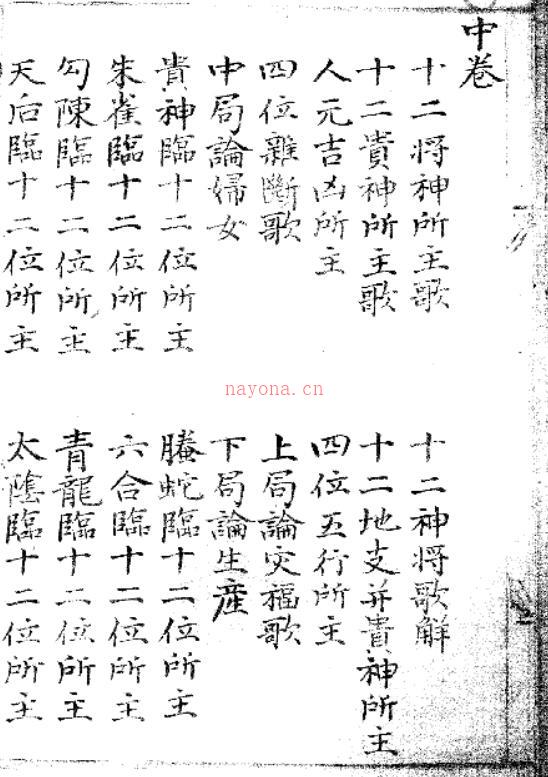 中卷
十二将神所主歌
十二神将歌觧
十二貴神所主歌
十二地支并貴神所主
人元吉凶所主
四位五行所主
四位雜斷歌
上局論灾福歌
中局論婦女
下局論生産
貴神臨十二位所主
螣蛇臨十二位所主
朱雀臨十二位所主
六合臨十二位所主
勾陳臨十二位所主
青龍臨十二位所主
天后臨十二位所主
太陰臨十二位所主
nayona.cn